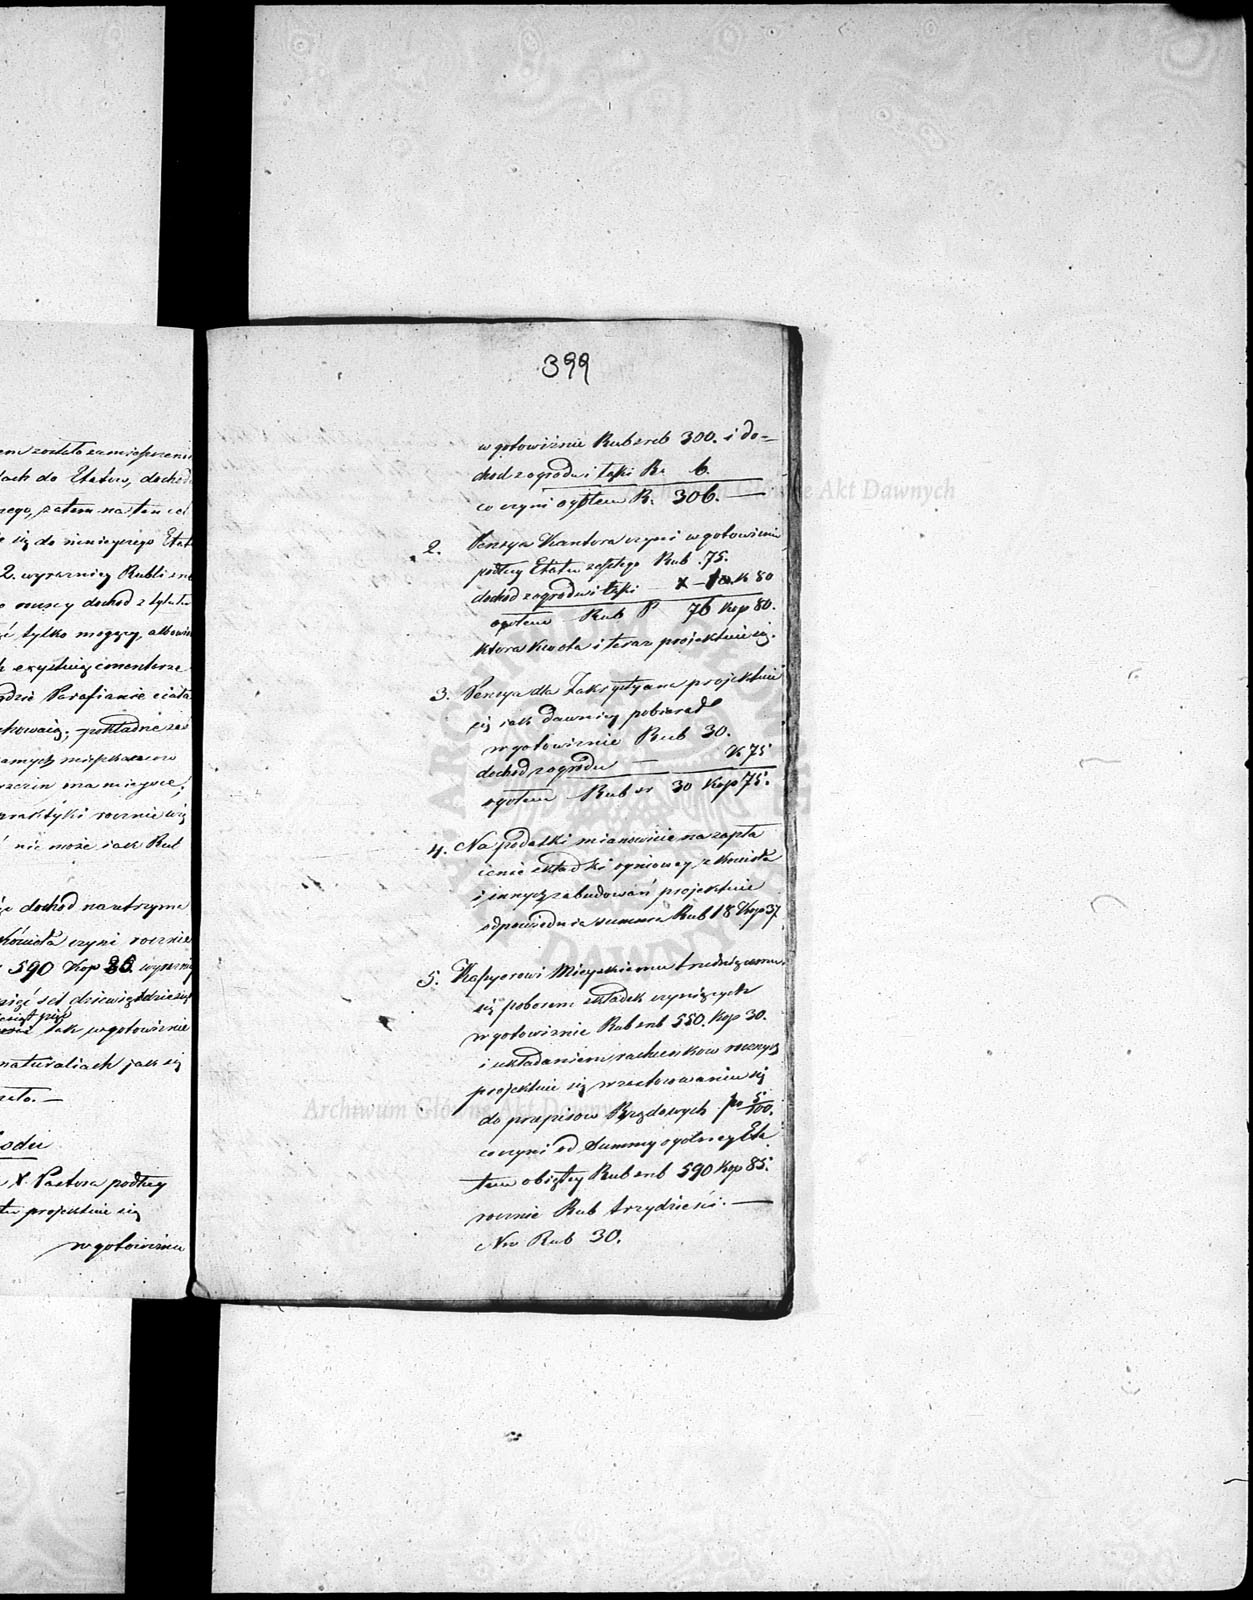 em zostało zamieszczenie
dach do Etatów, dochod
rego, zatem na ten cel
się do niniejszego Etatu
2. wyrazniej Rubli sre
noscy dochod z tytułu
tylko mogący, albowiem
exystuią cmentarze
gdzie Parafianie ciała
chowaią; pokładne zaś
samych mieszkancow
ma mieysce,
praktyki rocznie wię
nie może iak Rub
dochod na utrzyma
Kościoła czyni rocznie
590 Kop 86 wyrazniej
pięć set dziewięćdziesiąt
tak w gotowiznie
naturaliach jak się
rzekło. —
X. Pastora podług
projektuie się
w gotowiznie
399
w gotowiznie Rub sreb 300. i do-
chod z ogrodu i łąki R. 6.
co czyni ogółem R. 306. —
2. Pensya Kantora czyni w gotowiznie
podług Etatu zeszłego Rub. 75.
dochod z ogrodu i łąki — 1 K 80
ogółem Rub 76 Kop 80.
ktora kwota i teraz projektuie się.
3. Pensya dla Zakrystyana projektuie
się jak dawniey pobierał
w gotowiznie Rub 30.
dochod z ogrodu — K 75
ogółem Rub sr 30 Kop 75.
4. Na podatki mianowicie na zapła
cenie składki ogniowey z Kościoła
i innych zabudowań projektuie
odpowiednia summa Rub 18 Kop 37
5. Kassyerowi Mieyskiemu trudniącemu
się poborem składek czyniących
w gotowiznie Rub sreb 550. Kop 30.
i układaniem rachunkow rocznych
projektuie się w zastosowaniu się
do przepisow Rządowych po 5/100.
co czyni od Summy ogolney Eta
tem obiętey Rub sreb 590 Kop 85.
rocznie Rub trzydzieści. —
No Rub 30.
Archiwum Główne Akt Dawnych
Archiwum Główne Akt Dawnych
ARCHIWUM GŁÓWNE AKT DAWNYCH